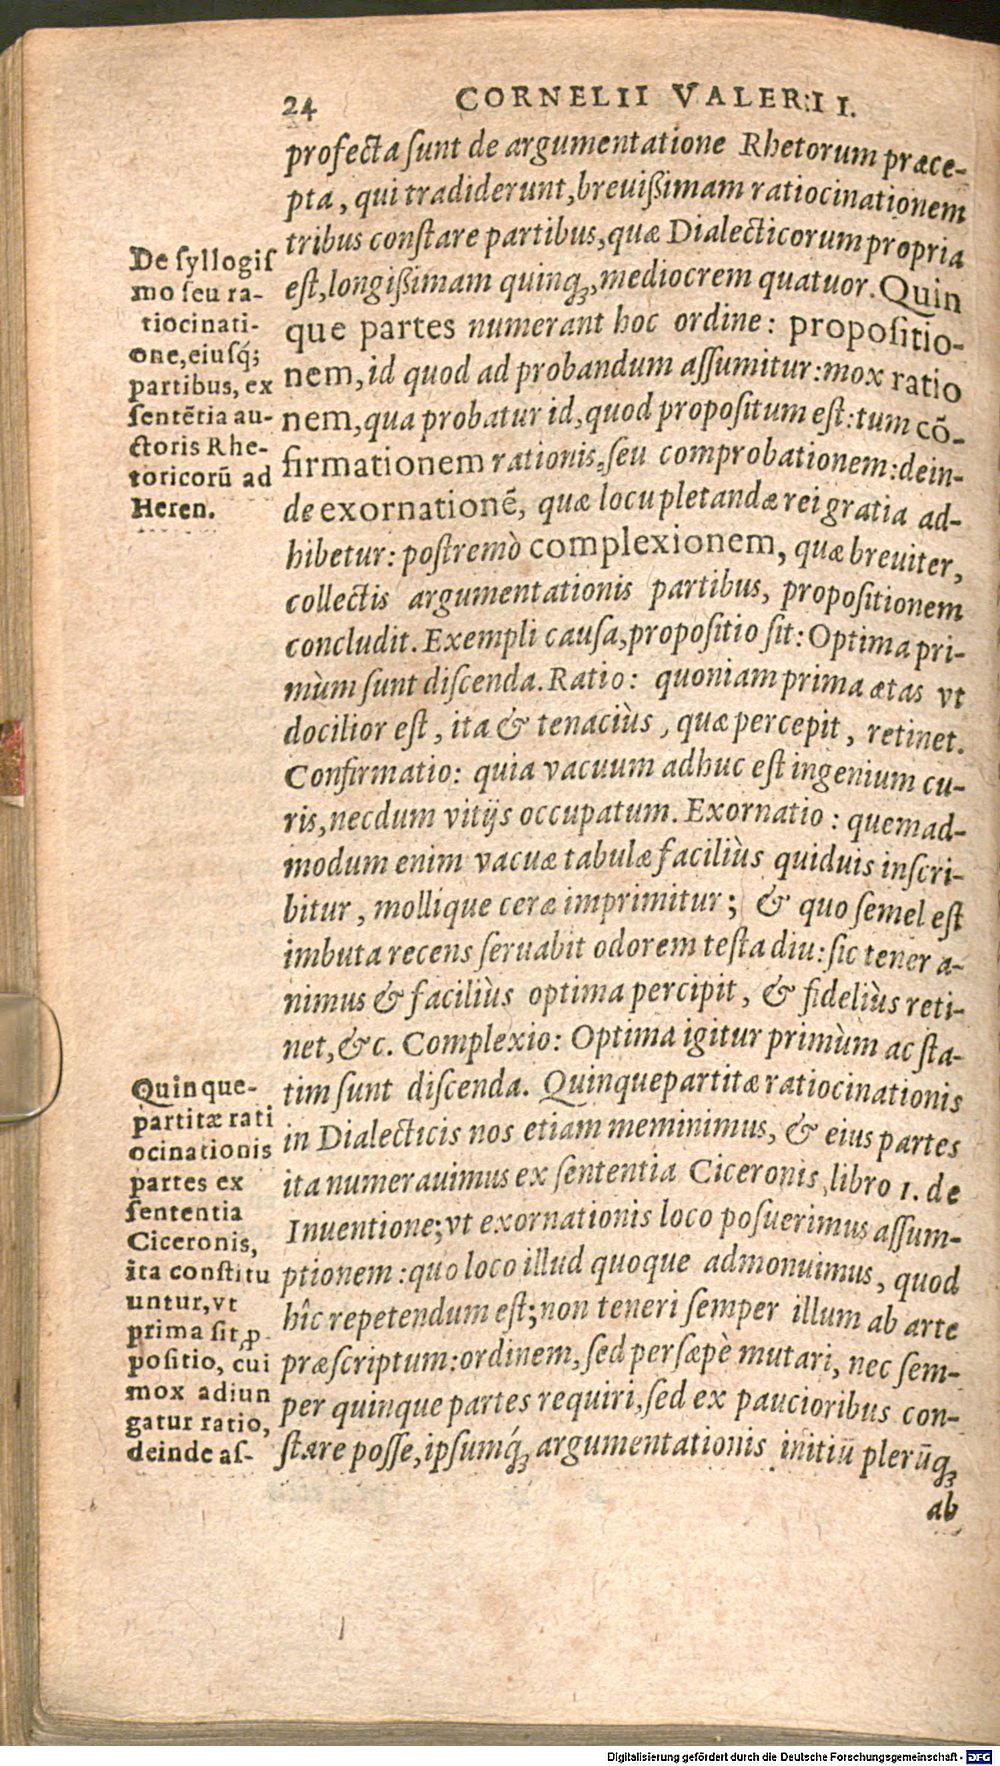 24 CORNELII VALERII I.
profecta ſunt de argumentatione Rhetorum præce-
pta, qui tradiderunt, breuißimam ratiocinationem
tribus conſtare partibus, quæ Dialecticorum propria
eſt, longißimam quinq;, mediocrem quatuor. Quin
que partes numerant hoc ordine: propoſitio-
nem, id quod ad probandum aſſumitur: mox ratio
nem, qua probatur id, quod propoſitum eſt: tum cō-
firmationem rationis, ſeu comprobationem: dein-
de exornationē, quæ locupletandæ rei gratia ad-
hibetur: poſtremò complexionem, quæ breuiter,
collectis argumentationis partibus, propoſitionem
concludit. Exempli cauſa, propoſitio ſit: Optima pri-
mùm ſunt diſcenda. Ratio: quoniam prima ætas vt
docilior eſt, ita & tenaciùs, quæ percepit, retinet.
Confirmatio: quia vacuum adhuc eſt ingenium cu-
ris, necdum vitijs occupatum. Exornatio: quemad-
modum enim vacuæ tabulæ faciliùs quiduis inſcri-
bitur, mollique ceræ imprimitur; & quo ſemel eſt
imbuta recens ſeruabit odorem teſta diu: ſic tener a-
nimus & faciliùs optima percipit, & fideliùs reti-
net, &c. Complexio: Optima igitur primùm ac ſta-
tim ſunt diſcenda. Quinquepartitæ ratiocinationis
in Dialecticis nos etiam meminimus, & eius partes
ita numerauimus ex ſententia Ciceronis, libro 1. de
Inuentione; vt exornationis loco poſuerimus aſſum-
ptionem: quo loco illud quoque admonuimus, quod
hîc repetendum eſt; non teneri ſemper illum ab arte
præſcriptum: ordinem, ſed perſæpè mutari, nec ſem-
per quinque partes requiri, ſed ex paucioribus con-
ſtare poſſe, ipſumq́; argumentationis initiū plerūq;
ab
De ſyllogiſ
mo ſeu ra-
tiocinati-
one, eiuſq́;
partibus, ex
ſentētia au-
ctoris Rhe-
toricorū ad
Heren.
Quinque-
partitæ rati
ocinationis
partes ex
ſententia
Ciceronis,
ita conſtitu
untur, vt
prima ſit ꝓ
poſitio, cui
mox adiun
gatur ratio,
deinde aſ-
Digitalisierung gefördert durch die Deutsche Forschungsgemeinschaft - DFG